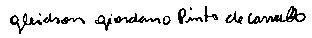 gleidson giordano Pinto de carvalho